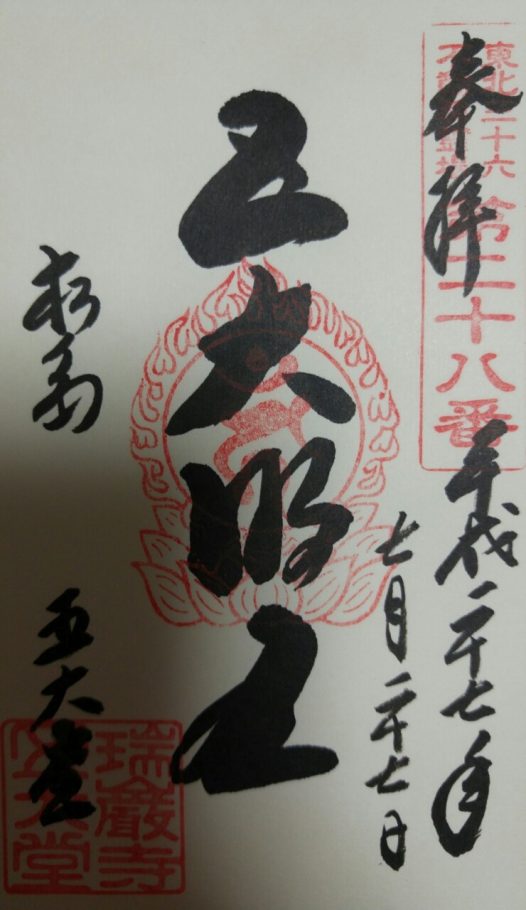 奉拝
東北三十六
不動尊霊場
第二十八番
平成二十七年
七月二十七日
五大明王
松島
五大堂
瑞巖寺
五大堂